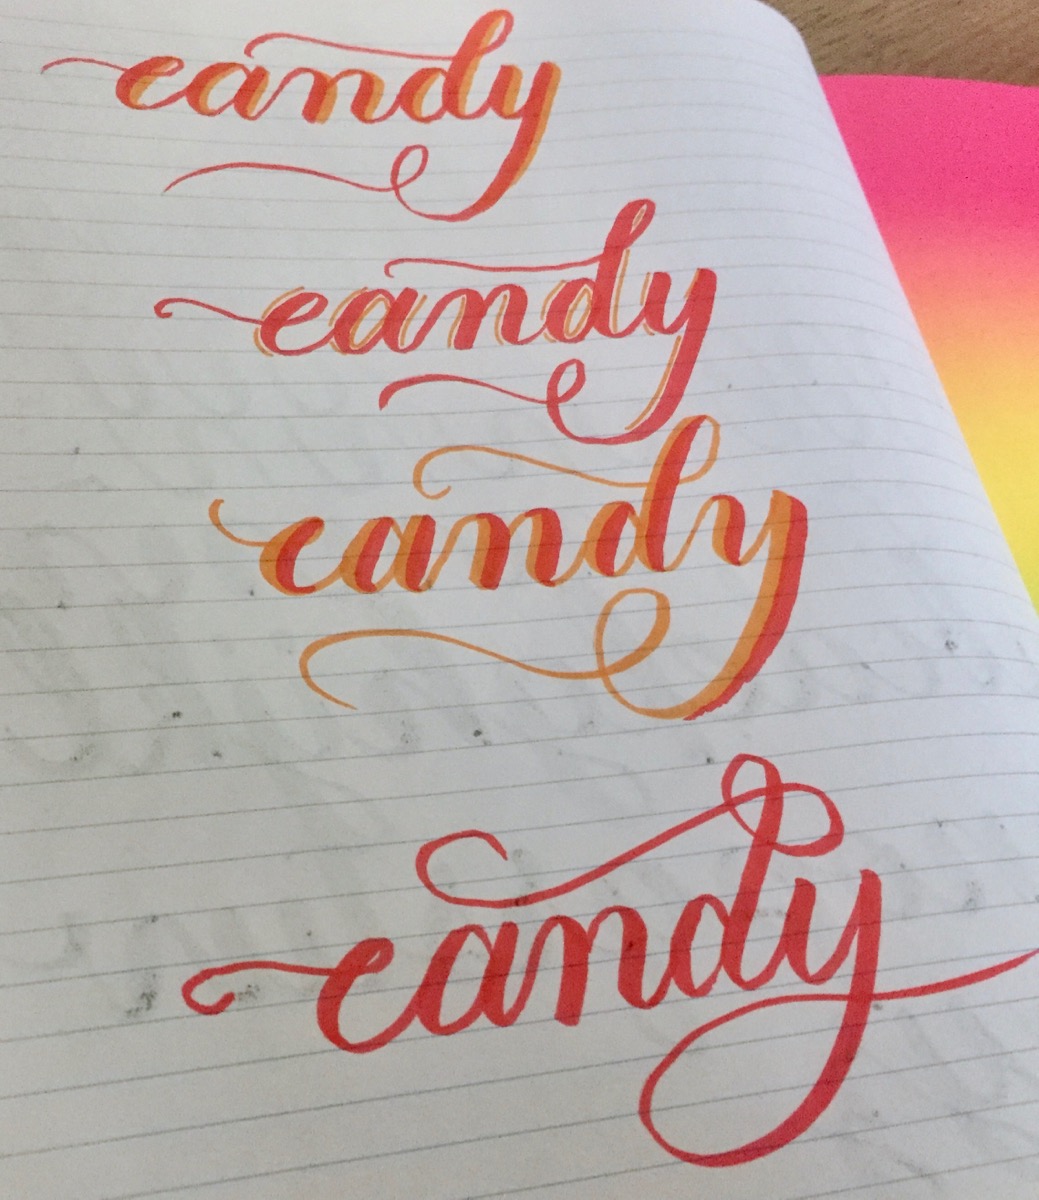 candy
candy
candy
candy